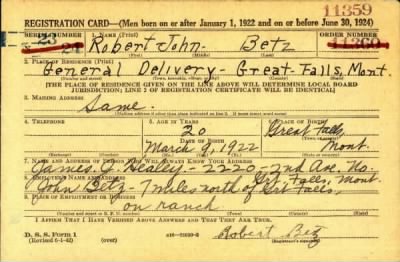 11359
REGISTRATION CARD—(Men born on or after January 1, 1922 and on or before June 30, 1924)
SERIAL NUMBER 1. NAME (Print) ORDER NUMBER
23 Robert John Betz 11360
24
2. PLACE OF RESIDENCE (Print)
General Delivery - Great Falls, Mont.
[THE PLACE OF RESIDENCE GIVEN ON THE LINE ABOVE WILL DETERMINE LOCAL BOARD
JURISDICTION; LINE 2 OF REGISTRATION CERTIFICATE WILL BE IDENTICAL]
3. MAILING ADDRESS
Same.
4. TELEPHONE 5. AGE IN YEARS 6. PLACE OF BIRTH
20 Great Falls,
DATE OF BIRTH
March 9, 1922 Mont.
7. NAME AND ADDRESS OF PERSON WHO WILL ALWAYS KNOW YOUR ADDRESS
James C. Healey - 2220 - 2nd Ave. No.
8. EMPLOYER'S NAME AND ADDRESS Grt. Falls, Mont.
John Betz - 7 miles north of Grt Falls.
9. PLACE OF EMPLOYMENT OR BUSINESS
on ranch
I AFFIRM THAT I HAVE VERIFIED ABOVE ANSWERS AND THAT THEY ARE TRUE.
D. S. S. Form 1
(Revised 6-1-42) (over) Robert Betz
(Registrant's signature)